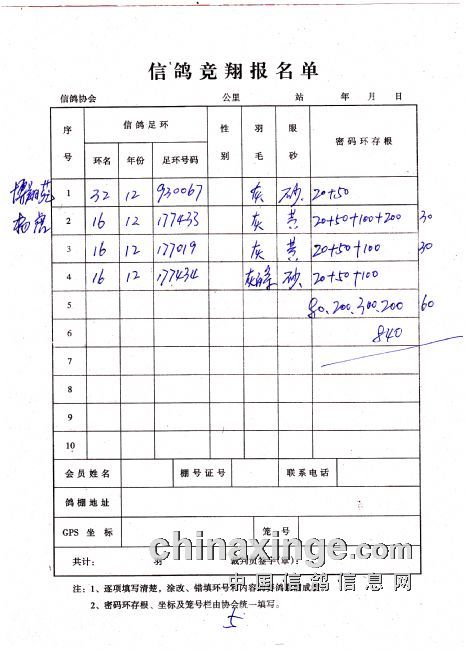 信鸽竞翔报名单
信鸽协会 公里 站 年 月 日
序号 信鸽足环 性别 羽毛 眼砂 密码环存根
环名 年份 足环号码
1 32 12 930067 灰 砂 20+50
2 16 12 177433 灰 黄 20+50+100+200 30
3 16 12 177019 灰 黄 20+50+100 30
4 16 12 177434 砂 20+50+100
5 80.200.300.200 60
6 840
7
8
9
10
会员姓名 棚号证号 联系电话
鸽棚地址
GPS 坐标 笼号
共计: 羽 裁判员签字(章):
chinaxinge.com
中国信鸽信息网
注:1、逐项填写清楚,涂改、错填环号和内容
2、密码环存根、坐标及笼号栏由协会统一填写。
5